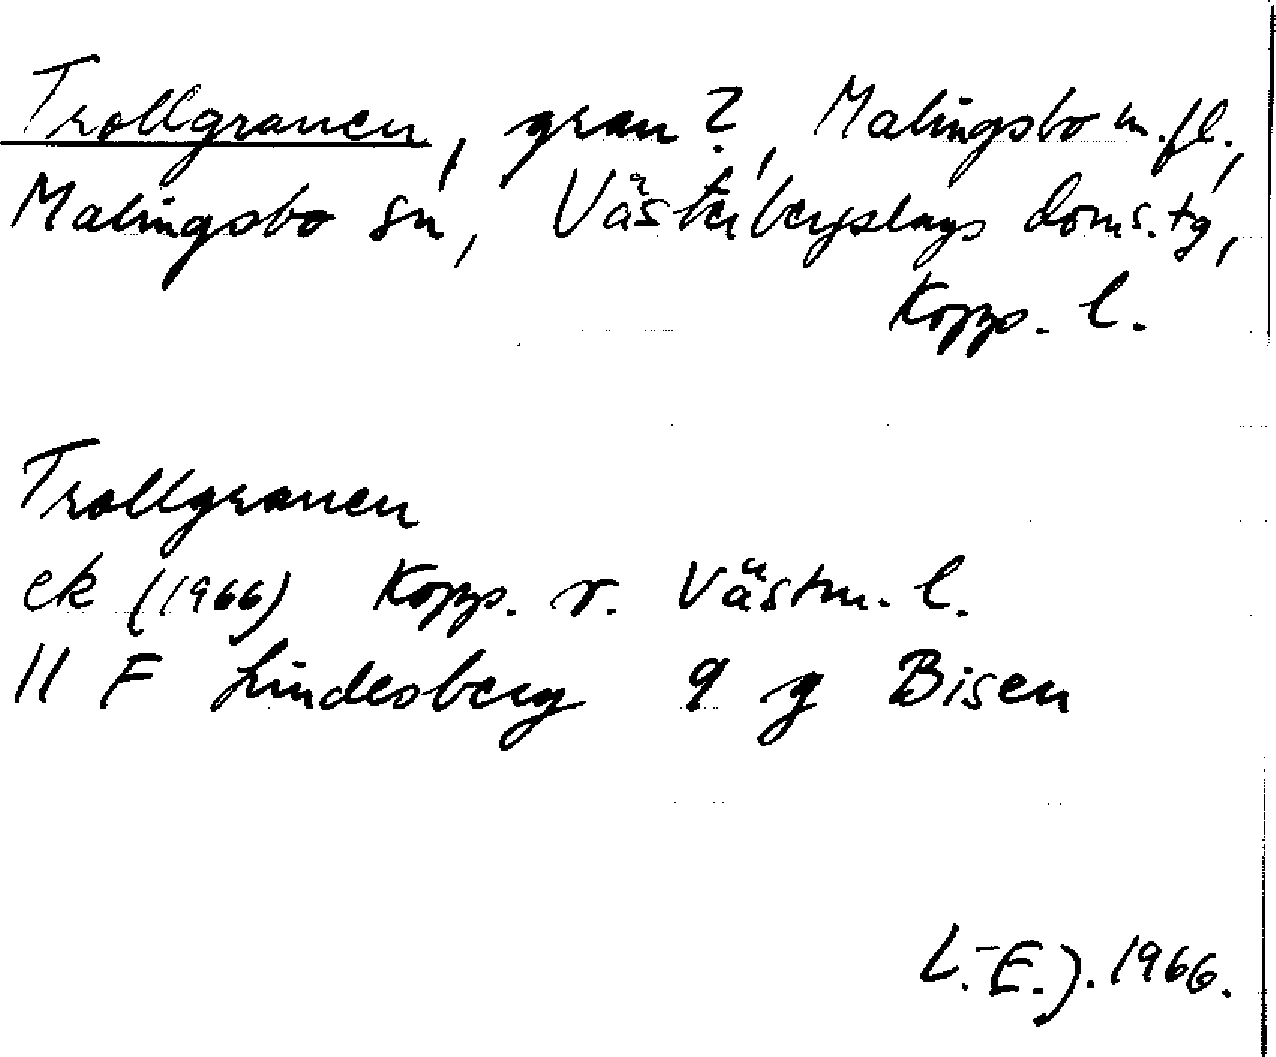 Trollgranen, gran?, Malingsbo m.fl.,
Malingsbo sn, Västerbergslags doms.tg,
Kopp. l.
Trollgranen
ek (1966) Kopp. o. Västm. l.
11 F Lindesberg 9 g Bisen
L.-E.J. 1966.